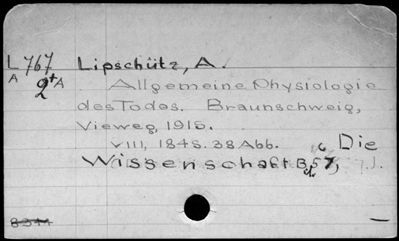 L767 Lipschütz, A.
A 2+A Allgemeine Physiologie
des Todes. Braunschweig,
Vieweg, 1915.
VIII, 184S. 38 Abb. Die
Wissenschaft Bd 57,
8344